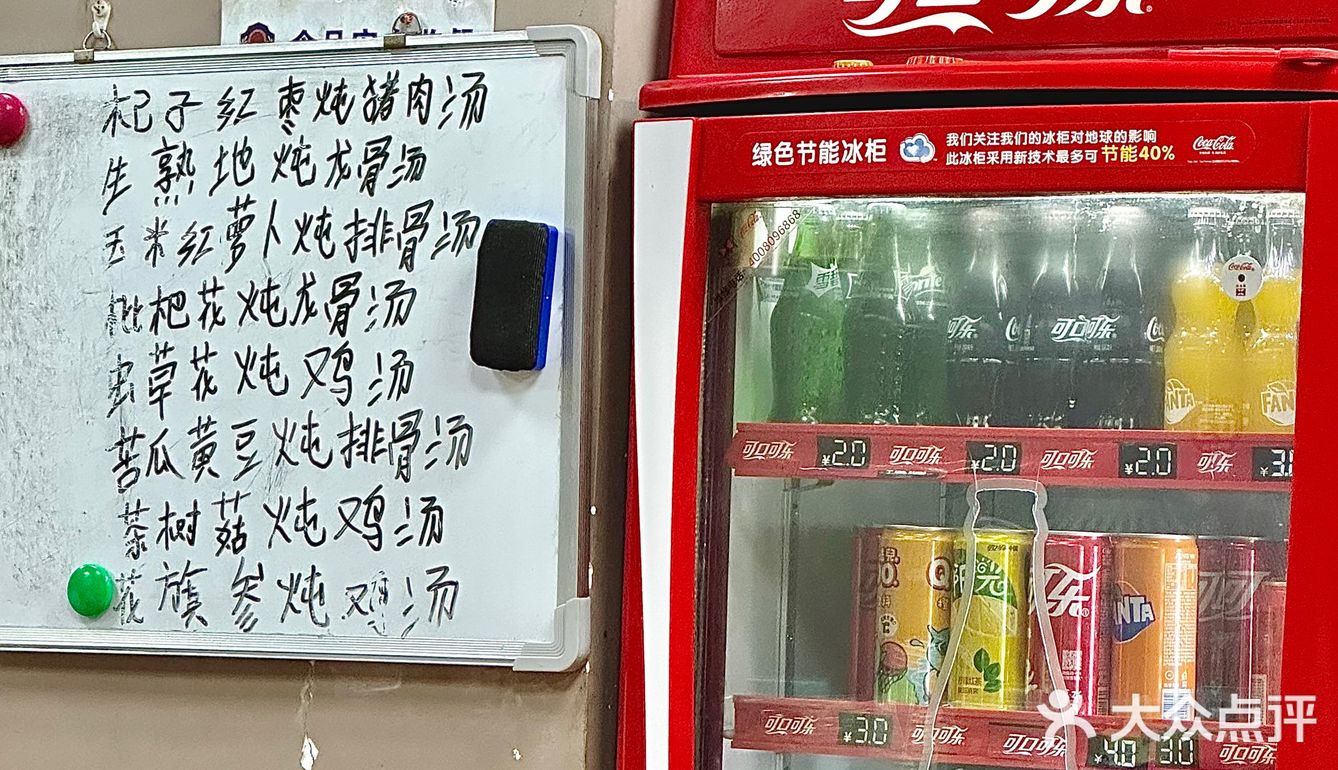 杞子红枣炖猪肉汤
生熟地炖龙骨汤
玉米红萝卜炖排骨汤
枇杷花炖龙骨汤
虫草花炖鸡汤
苦瓜黄豆炖排骨汤
茶树菇炖鸡汤
花旗参炖鸡汤
可口可乐
绿色节能冰柜
我们关注我们的冰柜对地球的影响
此冰柜采用新技术最多可节能40%
Coca-Cola
4008096868
雪碧
可口可乐
FANTA
FANTA
可口可乐 ¥2.0 可口可乐 ¥2.0 可口可乐 ¥2.0
阳光
可乐
FANTA
可口可乐 ¥3.0 可口可乐 可口可乐 ¥4.0 3.0 可口可乐
大众点评